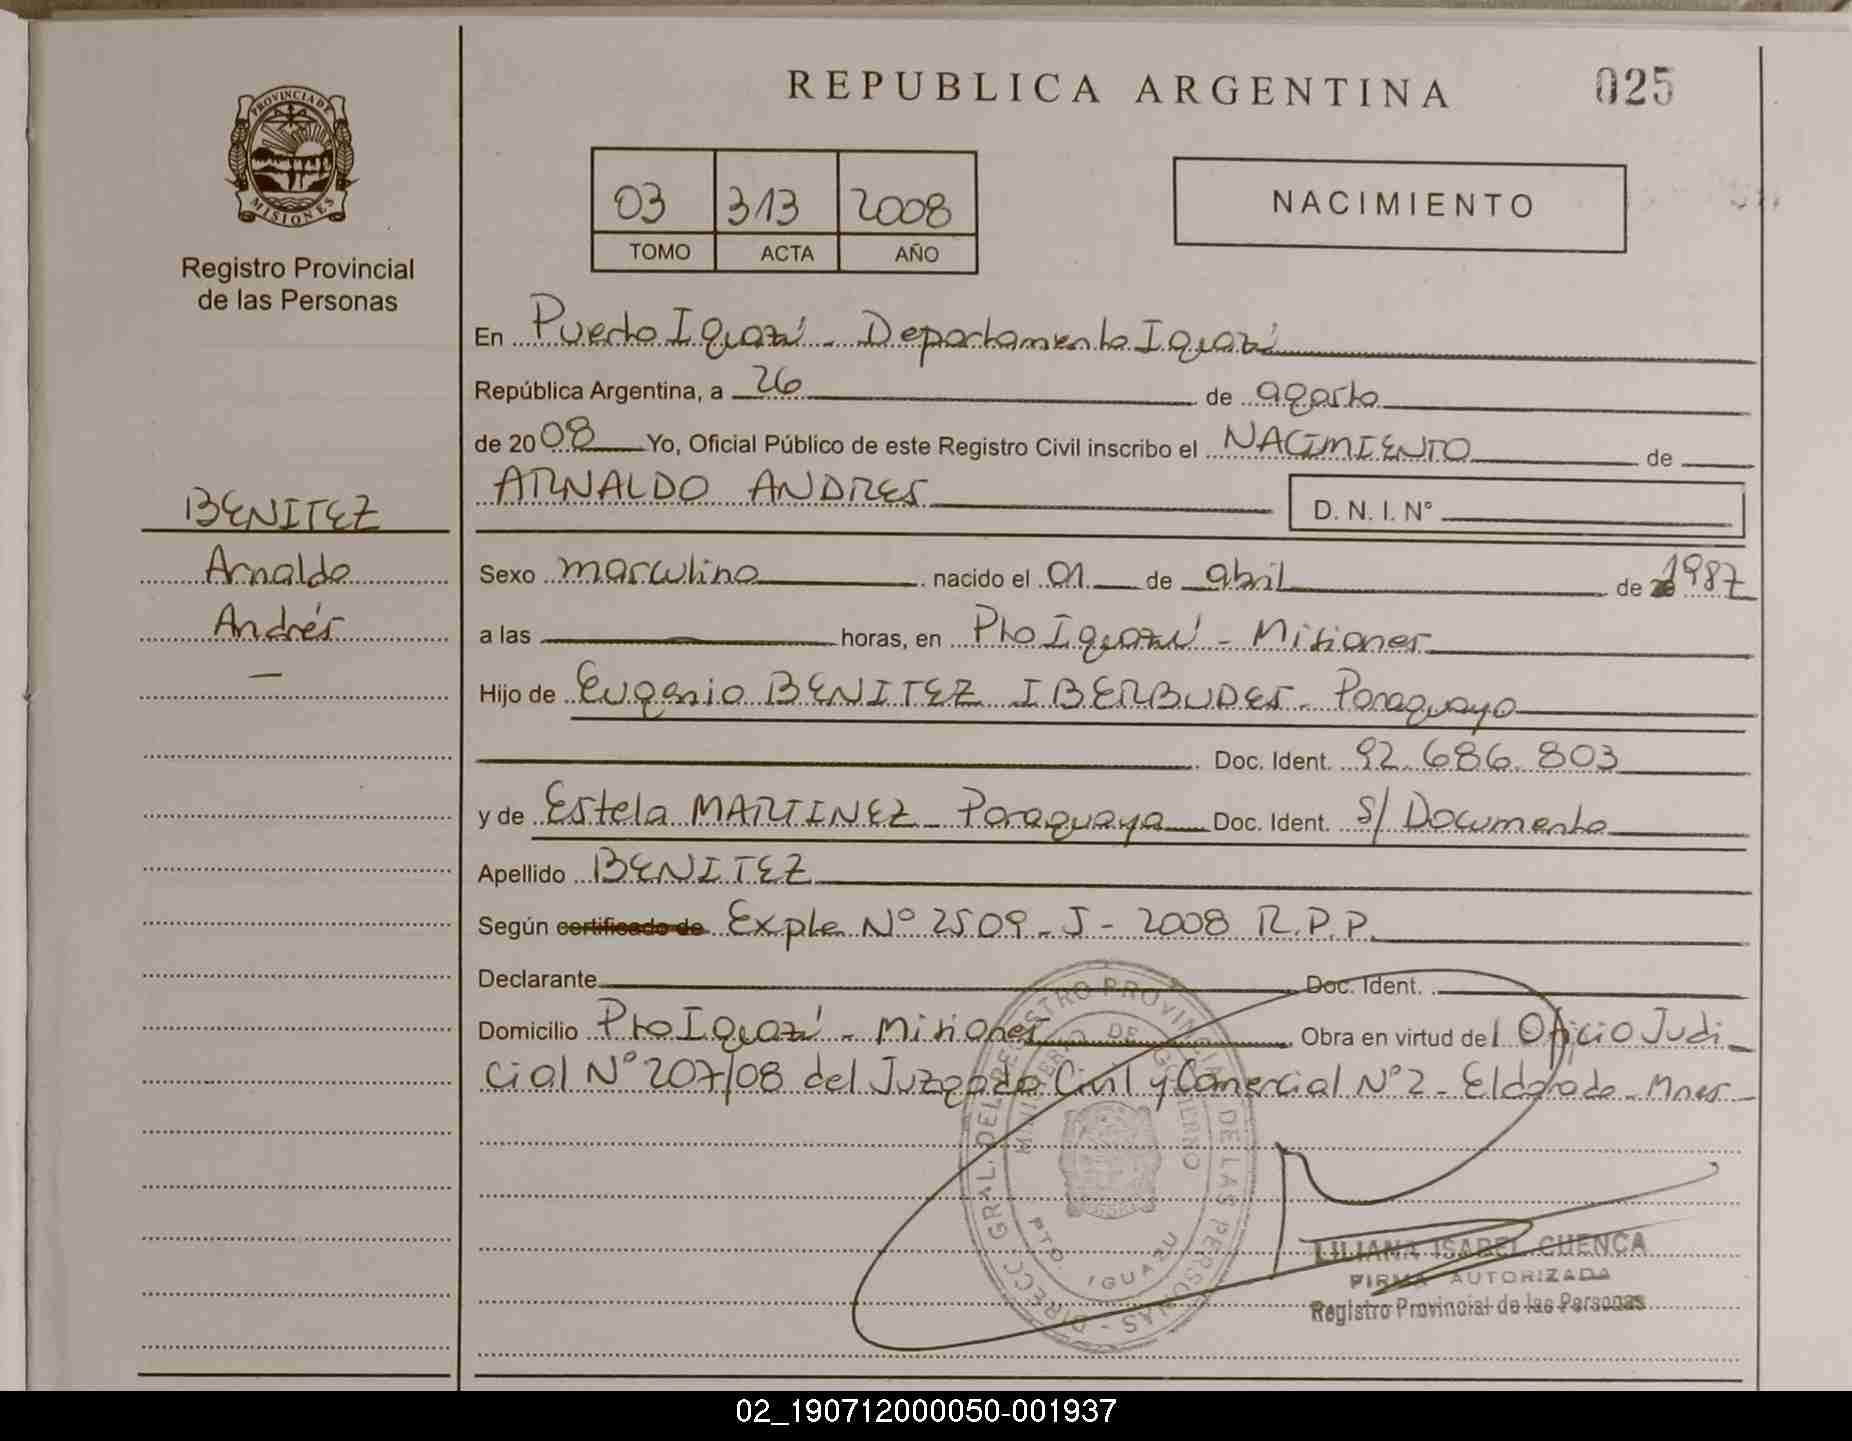 REPUBLICA ARGENTINA
025
PROVINCIA DE
MISIONES
Registro Provincial
de las Personas
03 313 2008
TOMO ACTA AÑO
NACIMIENTO
En Puerto Iguazú - Departamento Iguazú
República Argentina, a 26 de agosto
de 2008 Yo, Oficial Público de este Registro Civil inscribo el NACIMIENTO de
ARNALDO ANDRES
D. N. I. N°
BENITEZ
Arnaldo
Andrés
Sexo masculino nacido el 01 de abril de 1987
a las horas, en Pto Iguazú - Misiones
Hijo de Eugenio BENITEZ IBERBUDES - Paraguayo
Doc. Ident. 92.686.803
y de Estela MARTINEZ - Paraguaya Doc. Ident. S/ Documento
Apellido BENITEZ
Según certificado de Expte N° 2509 - J - 2008 R.P.P.
Declarante Doc. Ident.
Domicilio Pto Iguazú - Misiones Obra en virtud del Oficio Judi-
cial N° 207/08 del Juzgado Civil y Comercial N° 2 - Eldorado - Mnes -
DIRECC. GRAL. DEL REGISTRO PROVINCIAL DE LAS PERSONAS -
MINISTERIO DE GOBIERNO
PTO. IGUAZU
LILIANA ISABEL CUENCA
FIRMA AUTORIZADA
Registro Provincial de las Personas
02_190712000050-001937